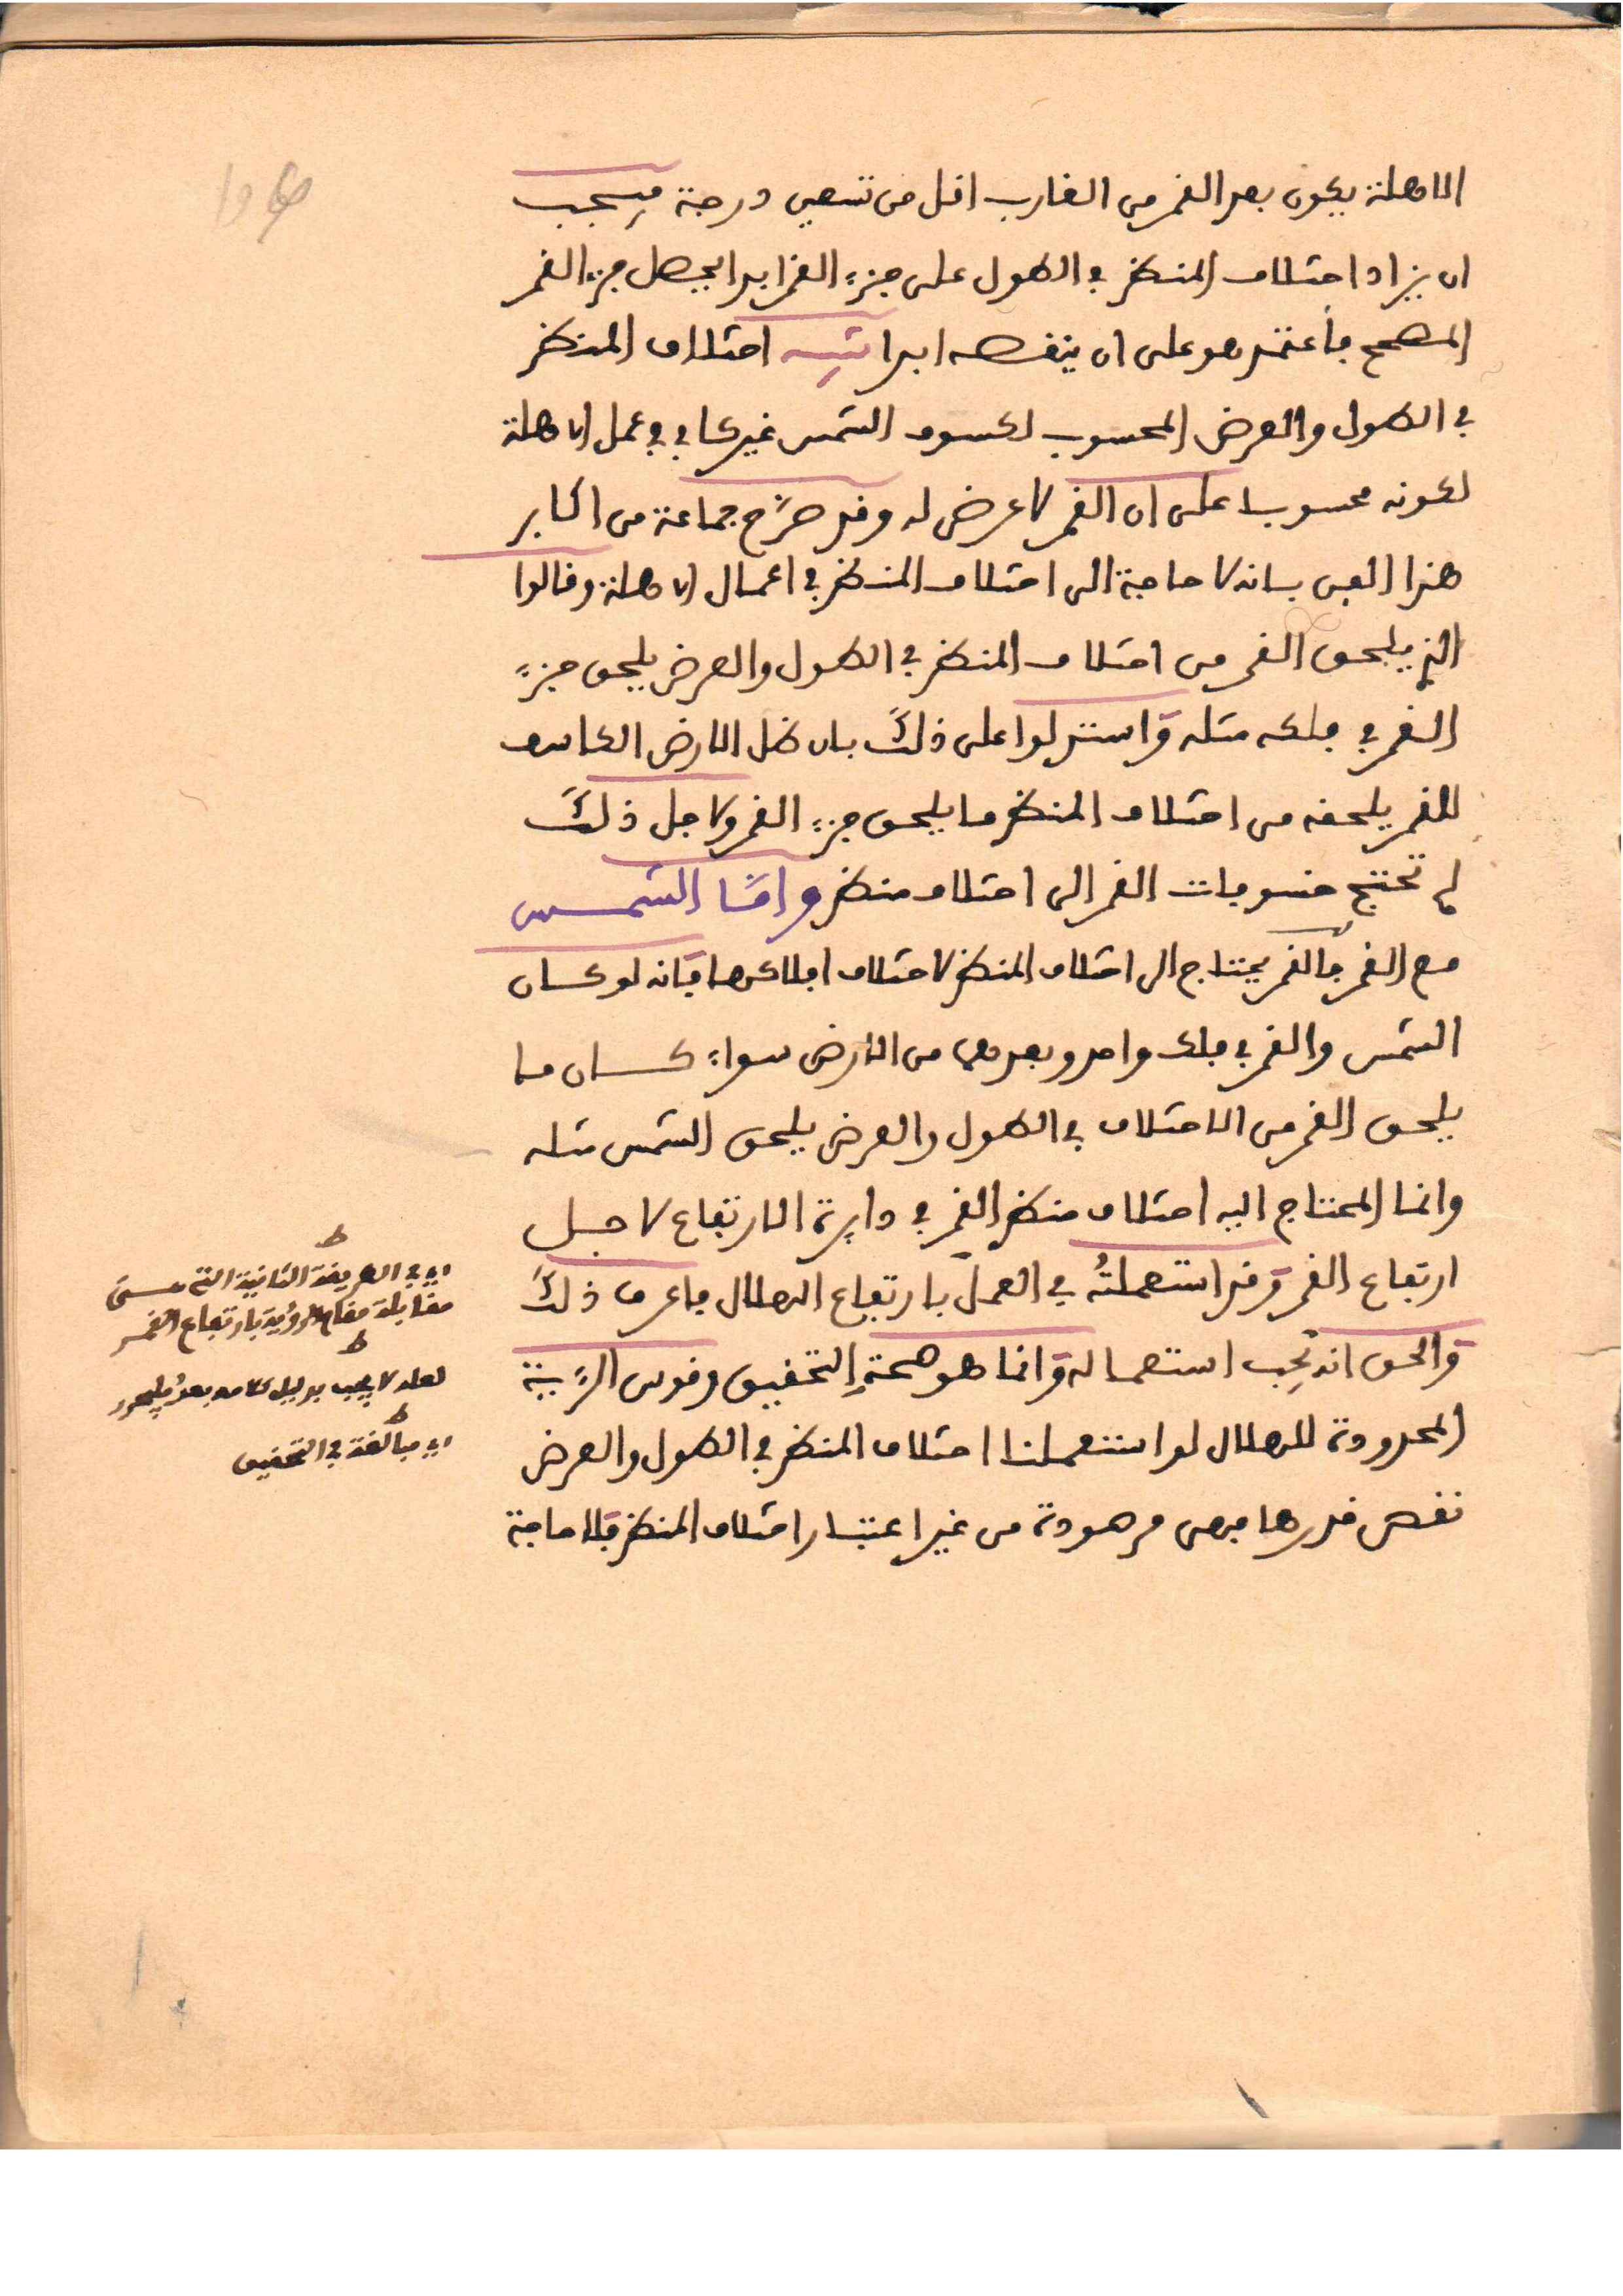 الاهلة يكون بعد القمر من الغارب اقل من تسعين درجة فيجب
ان يزاد اختلاف المنظر في الطول على جزء القمر ابدا ليحصل جزء القمر
المصحح فاعتمد هو على ان ينقصه ابدا تنبيه اختلاف المنظر
في الطول والعرض المحسوب لكسوف الشمس غير كاف في عمل الاهلة
لكونه محسوبا على ان القمر لا عرض له وقد صرّح جماعة من اكابر
هذا الفن بانه لا حاجة الى اختلاف المنظر في اعمال الاهلة وقالوا
الذي يلحق القمر من اختلاف المنظر في الطول والعرض يلحق جزء
القمر في فلكه مثله واستدلوا على ذلك بان ظل الارض الكاسف
للقمر يلحقه من اختلاف المنظر ما يلحق جزء القمر ولاجل ذلك
لم تحتج خسوفات القمر الى اختلاف منظر وامّا الشمس
مع القمر فالقمر يحتاج الى اختلاف المنظر لاختلاف افلاكهما فانه لو كان
الشمس والقمر في فلك واحد وبعدهما من الارض سواء كان ما
يلحق القمر من الاختلاف في الطول والعرض يلحق الشمس مثله
وانما المحتاج اليه اختلاف منظر القمر في دايرة الارتفاع لاجل
ارتفاع القمر وقد استعملتُه في العمل بارتفاع الهلال فاعرف ذلك
والحق انه يجب استعماله وانما هو صحة التحقيق وقوس الرّيبة
المحدودة للهلال لو استعملنا اختلاف المنظر في الطول والعرض
نقص قدرها فهى مرصودة من غير اعتبار اختلاف المنظر فلا حاجة
ط
اي في الطريقة الثانية التي مسمى
مقابلة مقام الرؤية بارتفاع القمر
ط
لعله لا يجب بدليل كلامه بعدُ فليحرر
ط
اي مبالغة في التحقيق